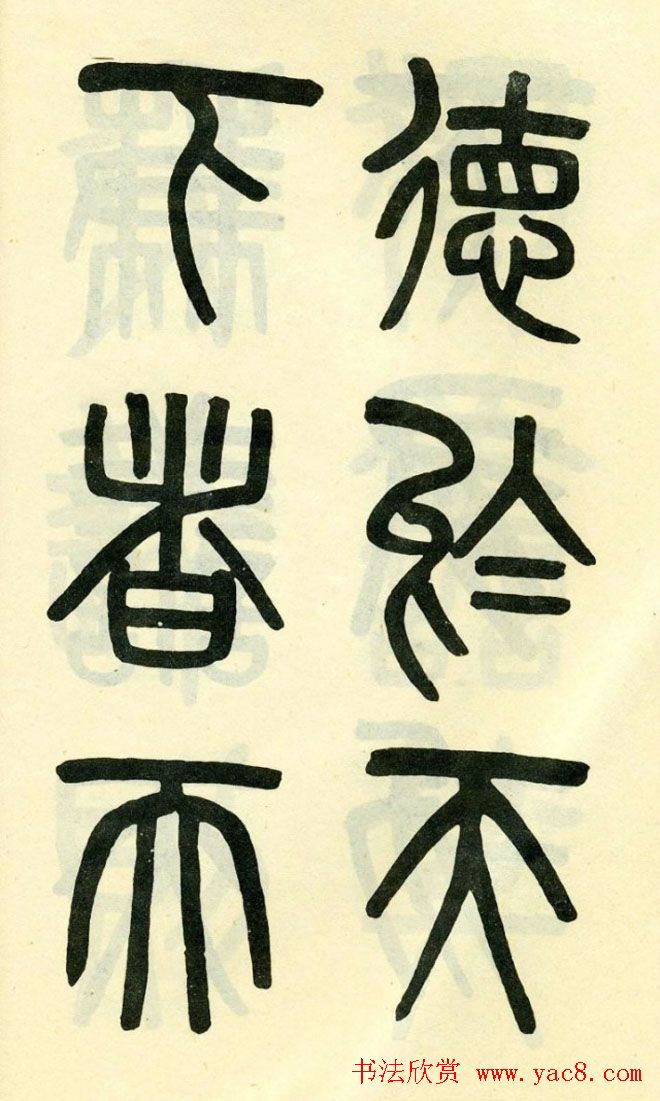 德於天
下者而
书法欣赏 www.yac8.com